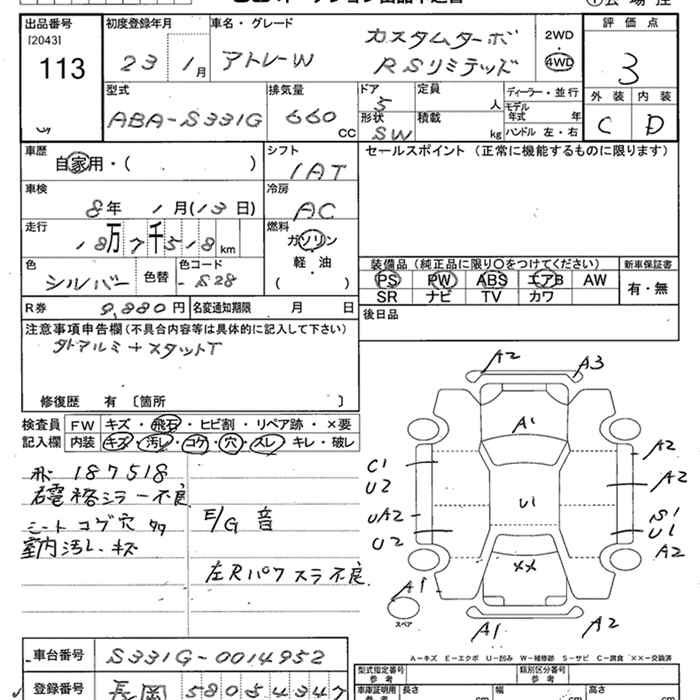 出品番号
[2043]
113
初度登録年月
23 1月
車名・グレード
アトレーW
カスタムターボ
RSリミテッド
2WD
・
4WD
評価点
3
外装 内装
C D
型式
ABA-S331G
排気量
660 cc
ドア
5
形状
SW
定員
人
積載
kg
ディーラー・並行
モデル年式 年
ハンドル 左・右
車歴
自家用・( )
シフト
IAT
セールスポイント (正常に機能するものに限ります)
車検
8年 1月(13日)
冷房
AC
走行
18万7千518km
燃料
ガソリン
軽・油
( )
色
シルバー
色替
色コード
S28
装備品 (純正品に限り○をつけてください)
PS PW ABS エアB AW
SR ナビ TV カワ
新車保証書
有・無
R券 9,880円
名変通知期限 月 日
後日品
注意事項申告欄 (不具合内容等は具体的に記入して下さい)
タトアルミ+スタットT
修復歴 有〔箇所 〕
検査員記入欄
FW キズ・飛石・ヒビ割・リペア跡・×要
内装 キズ・汚レ・コゲ・穴・スレ・キレ・破レ
187518
右電格ミラー不良
シートコゲ穴
室内汚レ.キズ
E/G 音
左Rパワスラ不良
A2
A3
A1
A2
C1
U2
A2
U1
UA2
S1
U1
U2
A2
××
A1
スペア
A1
A2
A-キズ E-エクボ U-凹み W-補修跡 S-サビ C-腐食 ××-交換済
車台番号
S331G-0014952
登録番号
長岡 580 5 4347
型式指定番号
参考
類別区分番号
参考
車庫証明用
参考
長さ
cm
幅
cm
高さ
cm